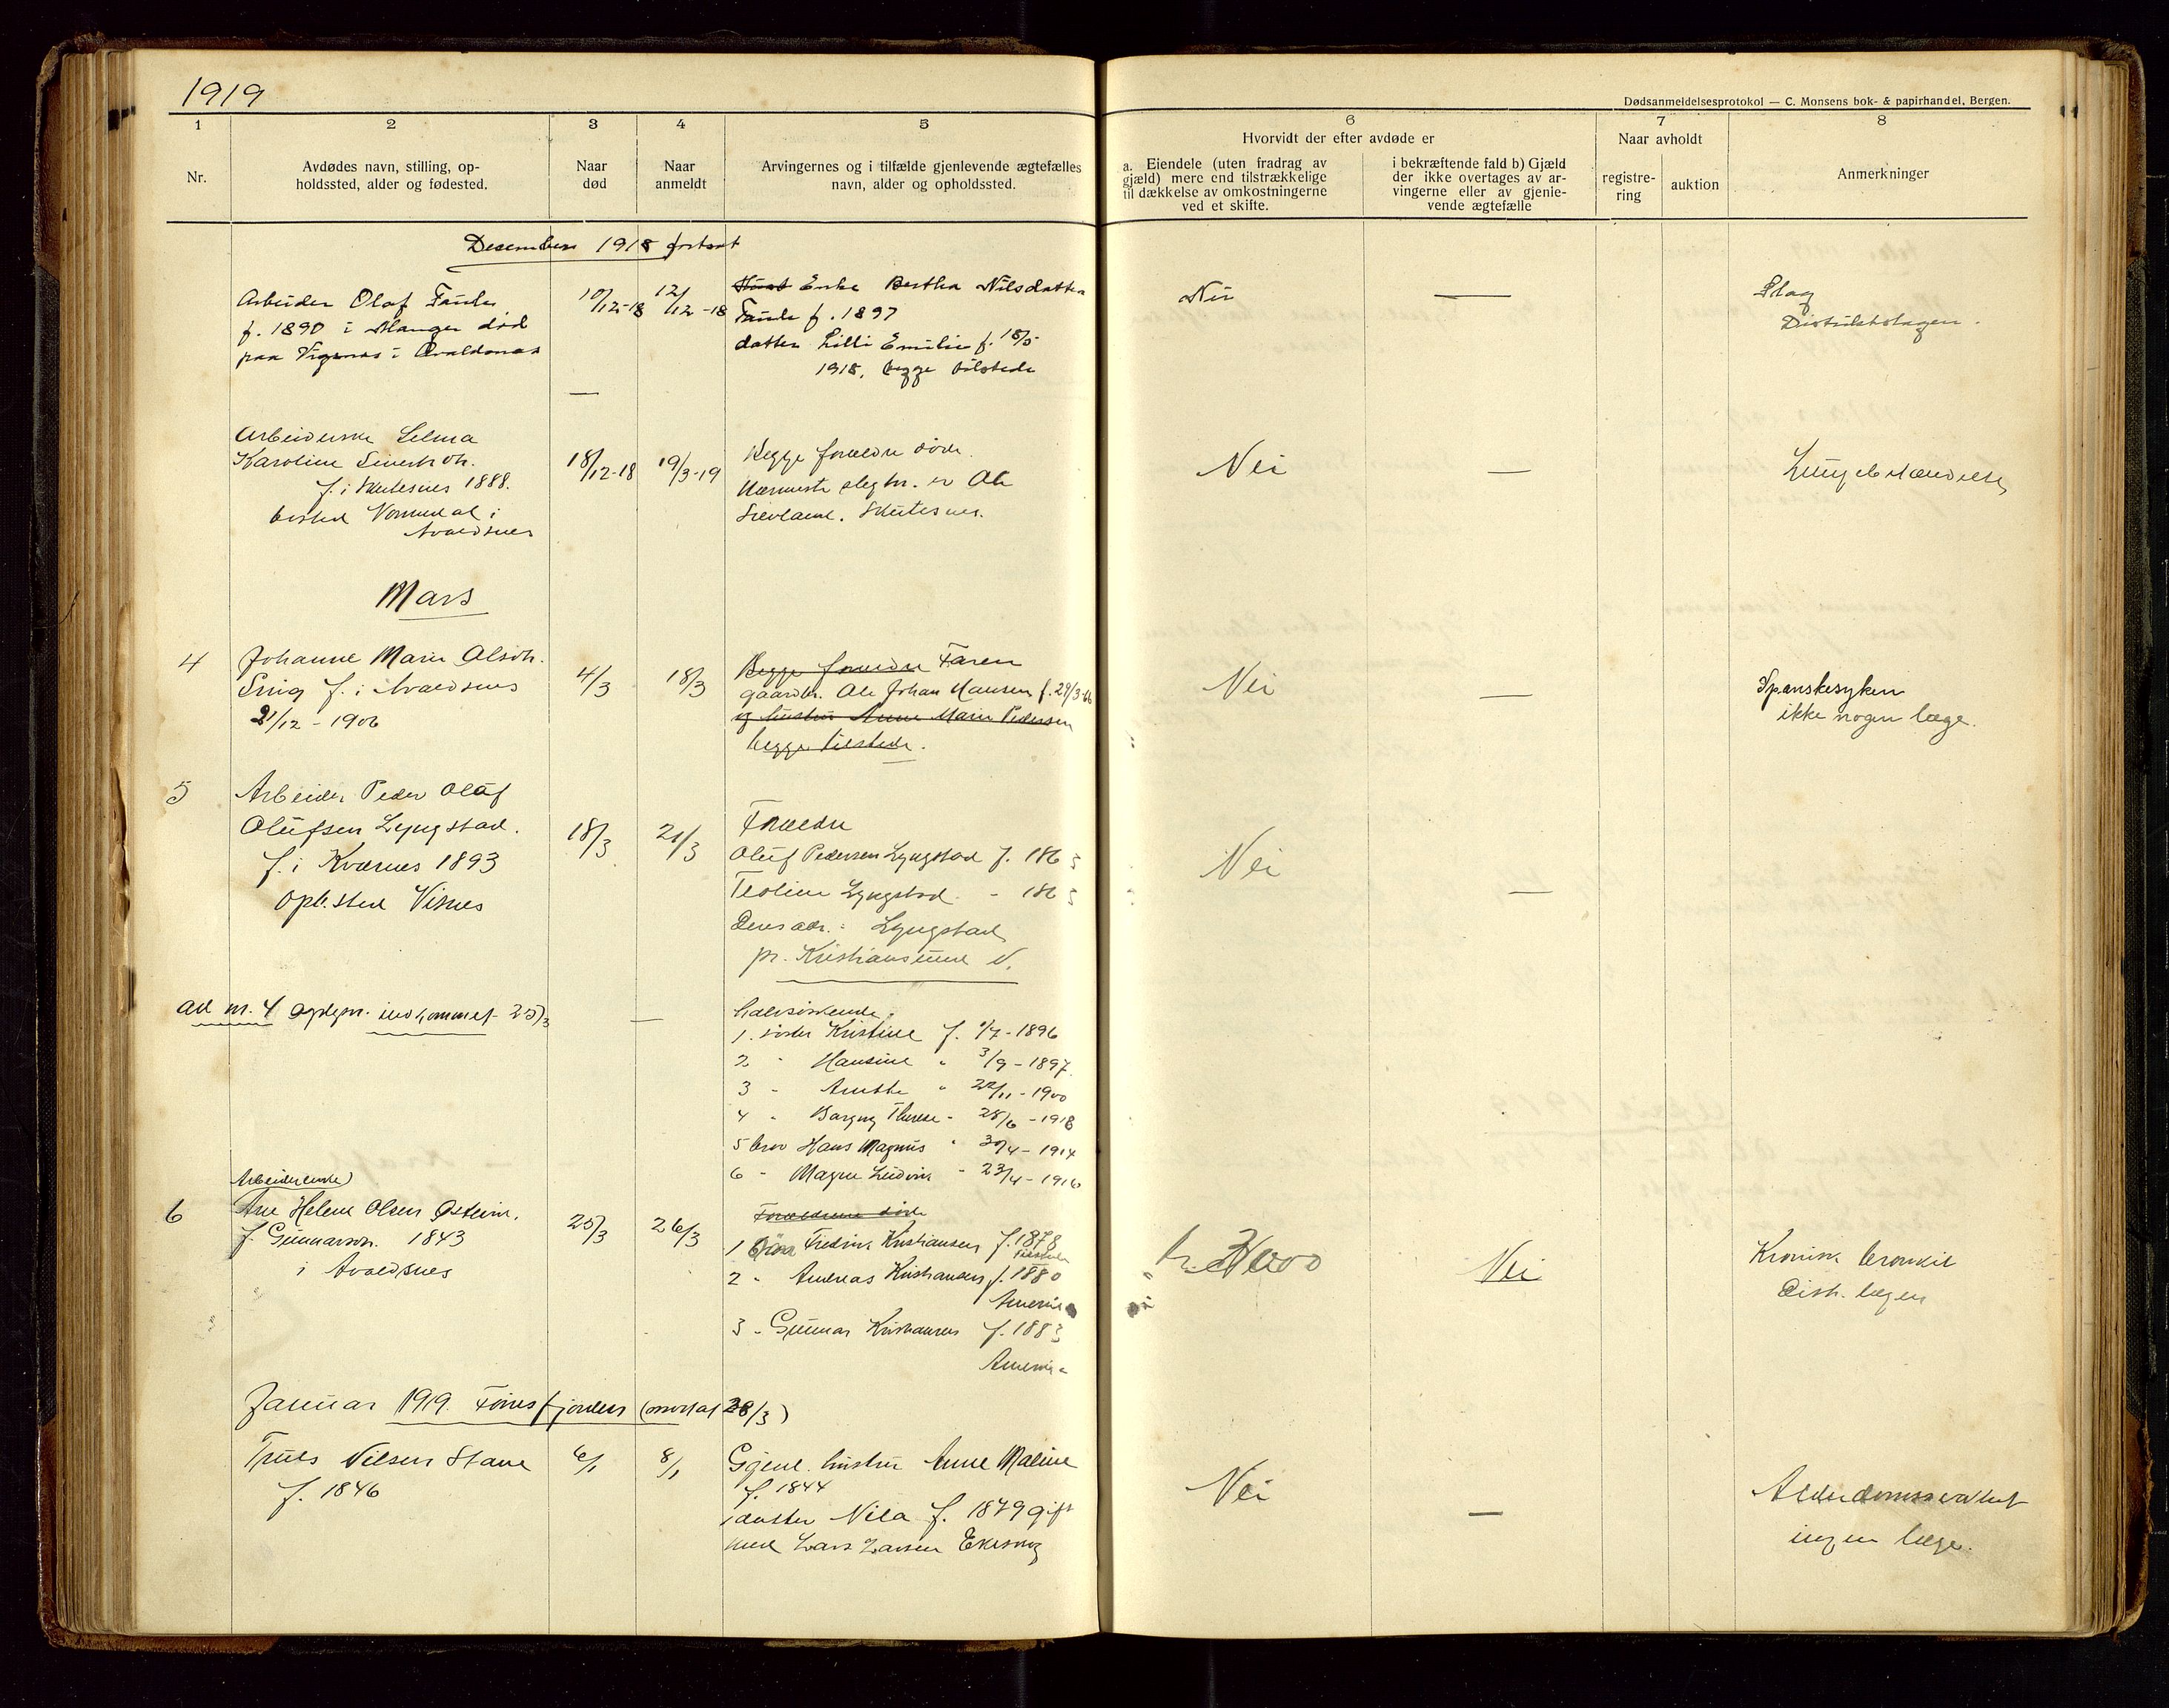 1919
Dødsanmeldelsesprotokol — C. Monsens bok- & papirhandel, Bergen.
1
2
3
4
5
6
7
8
Nr.
Avdødes navn, stilling, op-
holdssted, alder og fødested.
Naar
død
Naar
anmeldt
Arvingernes og i tilfælde gjenlevende ægtefælles
navn, alder og opholdssted.
Hvorvidt der efter avdøde er
a. Eiendele (uten fradrag av
gjæld) mere end tilstrækkelige
til dækkelse av omkostningerne
ved et skifte.
i bekræftende fald b) Gjæld
der ikke overtages av ar-
vingerne eller av gjenle-
vende ægtefælle
Naar avholdt
registre-
ring
auktion
Anmerkninger
Desember 1918 fortsat
Arbeider Olaf
f. 1890 i Manger død
paa Vigsnes i Avaldsnes
10/12-18
12/12-18
Enke Bertha Nilsdatter
f. 1897
datter Lilli Emilie f. 18/5
1918, begge tilstede
Nei
—
Slag
Distriktslægen.
Arbeiderske Selma
Karoline
f. i Skutesnes 1888.
bosted i
Avaldsnes
18/12-18
19/3-19
Begge forældre døde.
Nærmeste slegtn. er Ole
Skutesnes.
Nei
—
Lungebetændelse
Mars
4
Johanne Marie Olsdtr.
f. i Avaldsnes
21/12 - 1906
4/3
18/3
Begge forældre Faren
gaardbr. Ole Johan Hansen f. 29/3-66
og hustru Anne Marie Pedersen
begge tilstede.
Nei
—
Spanskesyken
ikke nogen læge.
5
Arbeider Peder Olaf
Olufsen Lyngstad.
f. i Kværnes 1893
opb.sted Visnes
18/3
21/3
Forældre
Oluf Pedersen Lyngstad f. 1865
Lyngstad - 1865
Deres adr.: Lyngstad
pr. Kristiansund N.
Nei
—
ad nr. 4 indkommet 25/3
—
halvsøskende
1. søster Kristine f. 1/7 - 1896
2 " Hansine " 3/9 - 1897
3 " Anette " 22/11 - 1900
4 " Borgny Therese - 28/6 - 1918
5 bror Hans Magnus " 30/4 - 1914
6 - Magne Ludvik - 23/4 - 1916
6
Arbeiderenke
Ane Helene Olsen Østeim.
f. Gunnarson. 1843
i Avaldsnes
25/3
26/3
Forældrene døde
1 Fredrik Kristiansen f. 1878
tilstede
2 - Andreas Kristiansen f. 1880
Amerika
3 - Gunnar Kristiansen f. 1883
Amerika
Nei
Kronisk bronkit
Distr. lægen
Januar 1919 (mottat 28/3)
Truls Nilsen Stave
f. 1846
6/1
8/1
Gjenl. hustru Anne Maline
f. 1844
datter Nila f. 1879 gift
med Lars Larsen Ekeskog
Nei
—
Alderdomssvakhet
ingen læge.